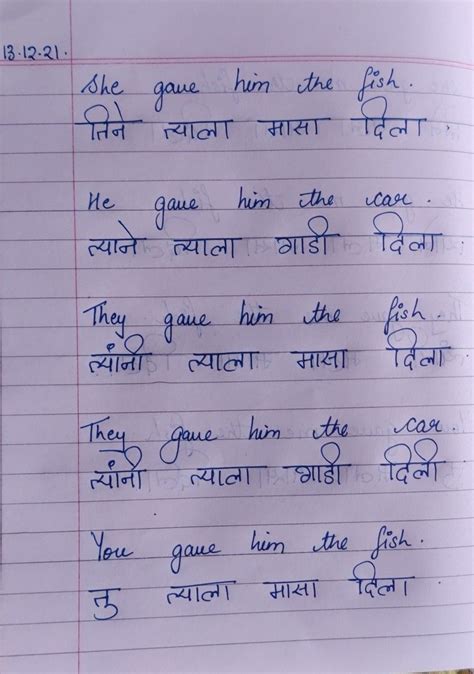 13.12.21.
She gave him the fish.
तिने त्याला मासा दिला
He gave him the car.
त्याने त्याला गाडी दिला
They gave him the fish.
त्यांनी त्याला मासा दिला
They gave him the car.
त्यांनी त्याला गाडी दिली
You gave him the fish.
तु त्याला मासा दिला